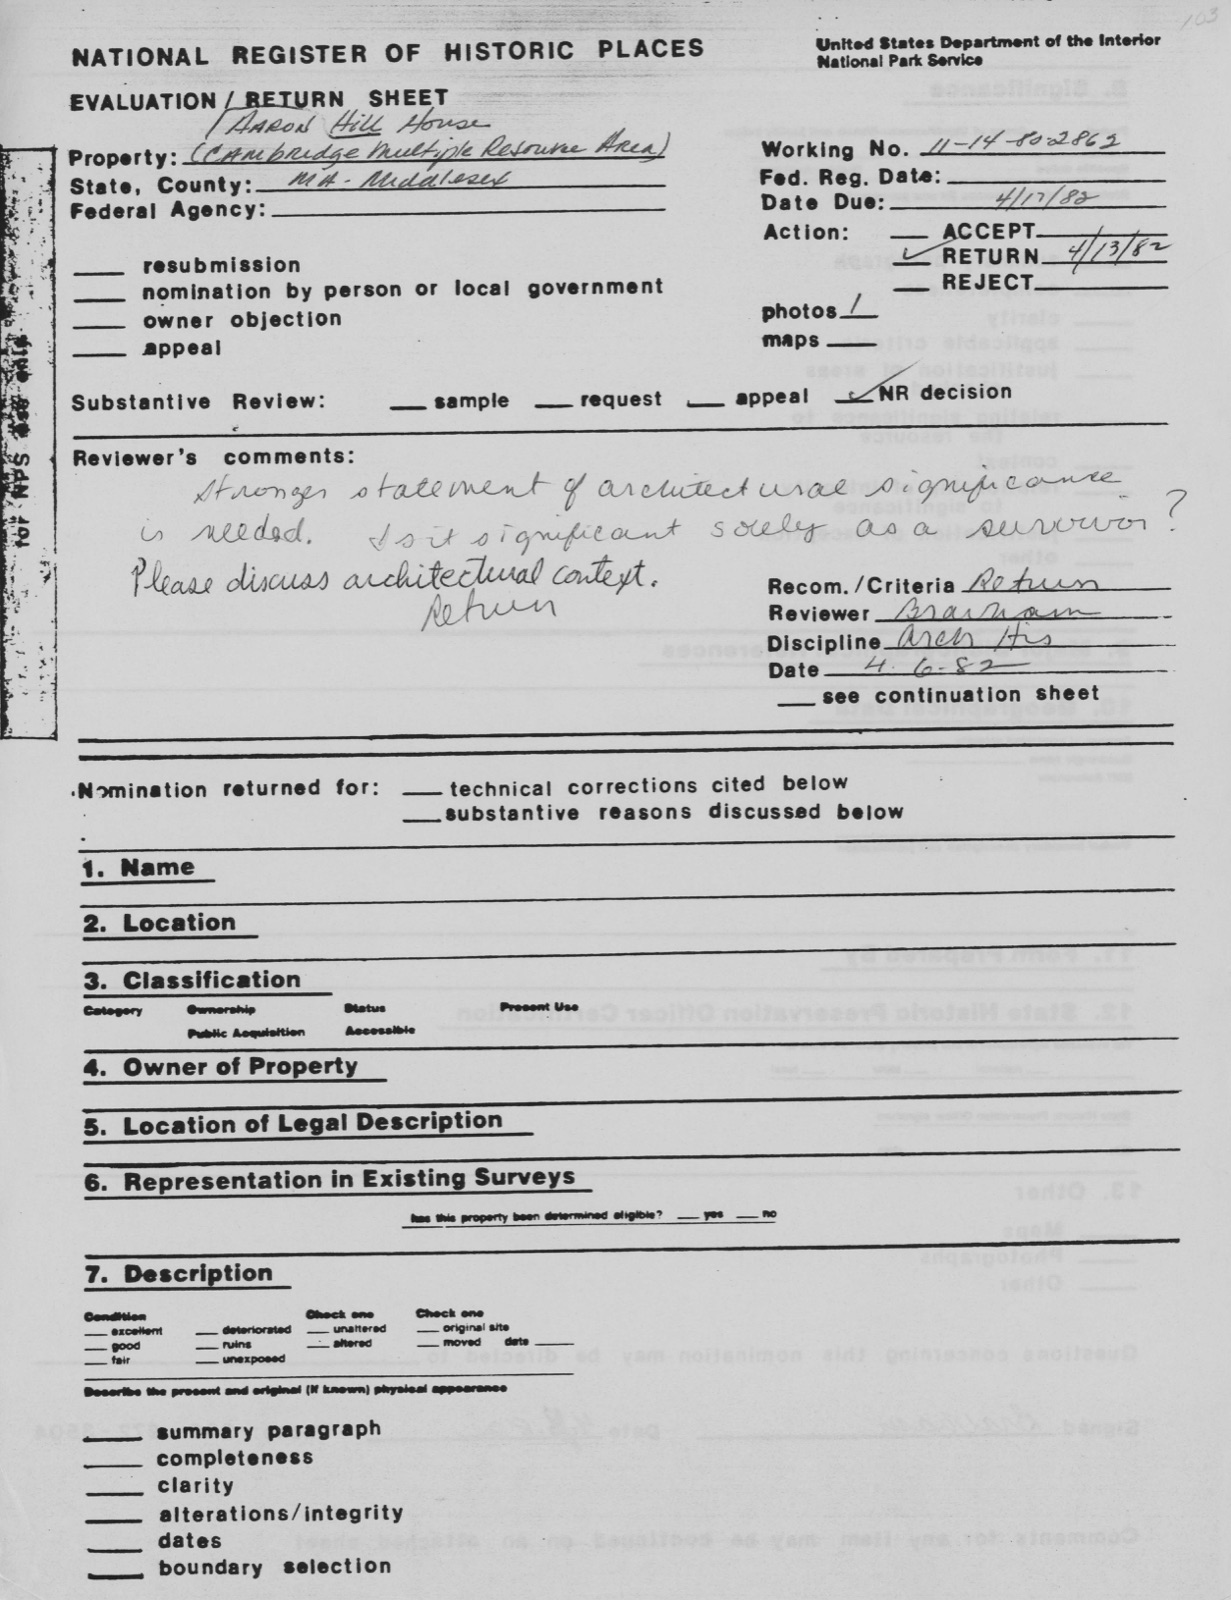 103
NATIONAL REGISTER OF HISTORIC PLACES
United States Department of the Interior
National Park Service
EVALUATION / RETURN SHEET
Aaron Hill House
Property: (Cambridge Multiple Resource Area)
State, County: MA - Middlesex
Federal Agency:
Working No. 11-14-80-2862
Fed. Reg. Date:
Date Due: 4/17/82
Action: ACCEPT
RETURN 4/13/82
REJECT
resubmission
nomination by person or local government
owner objection
appeal
photos 1
maps
for NPS use only
Substantive Review: sample request appeal NR decision
Reviewer's comments:
Stronger statement of architectural significance
is needed. Is it significant solely as a survivor?
Please discuss architectural context.
Return
Recom./Criteria Return
Reviewer
Discipline Arch His
Date 4-6-82
see continuation sheet
Nomination returned for: technical corrections cited below
substantive reasons discussed below
1. Name
2. Location
3. Classification
Category Ownership Status Present Use
Public Acquisition Accessible
4. Owner of Property
5. Location of Legal Description
6. Representation in Existing Surveys
has this property been determined eligible? yes no
7. Description
Condition Check one Check one
excellent deteriorated unaltered original site
good ruins altered moved date
fair unexposed
Describe the present and original (if known) physical appearance
summary paragraph
completeness
clarity
alterations/integrity
dates
boundary selection